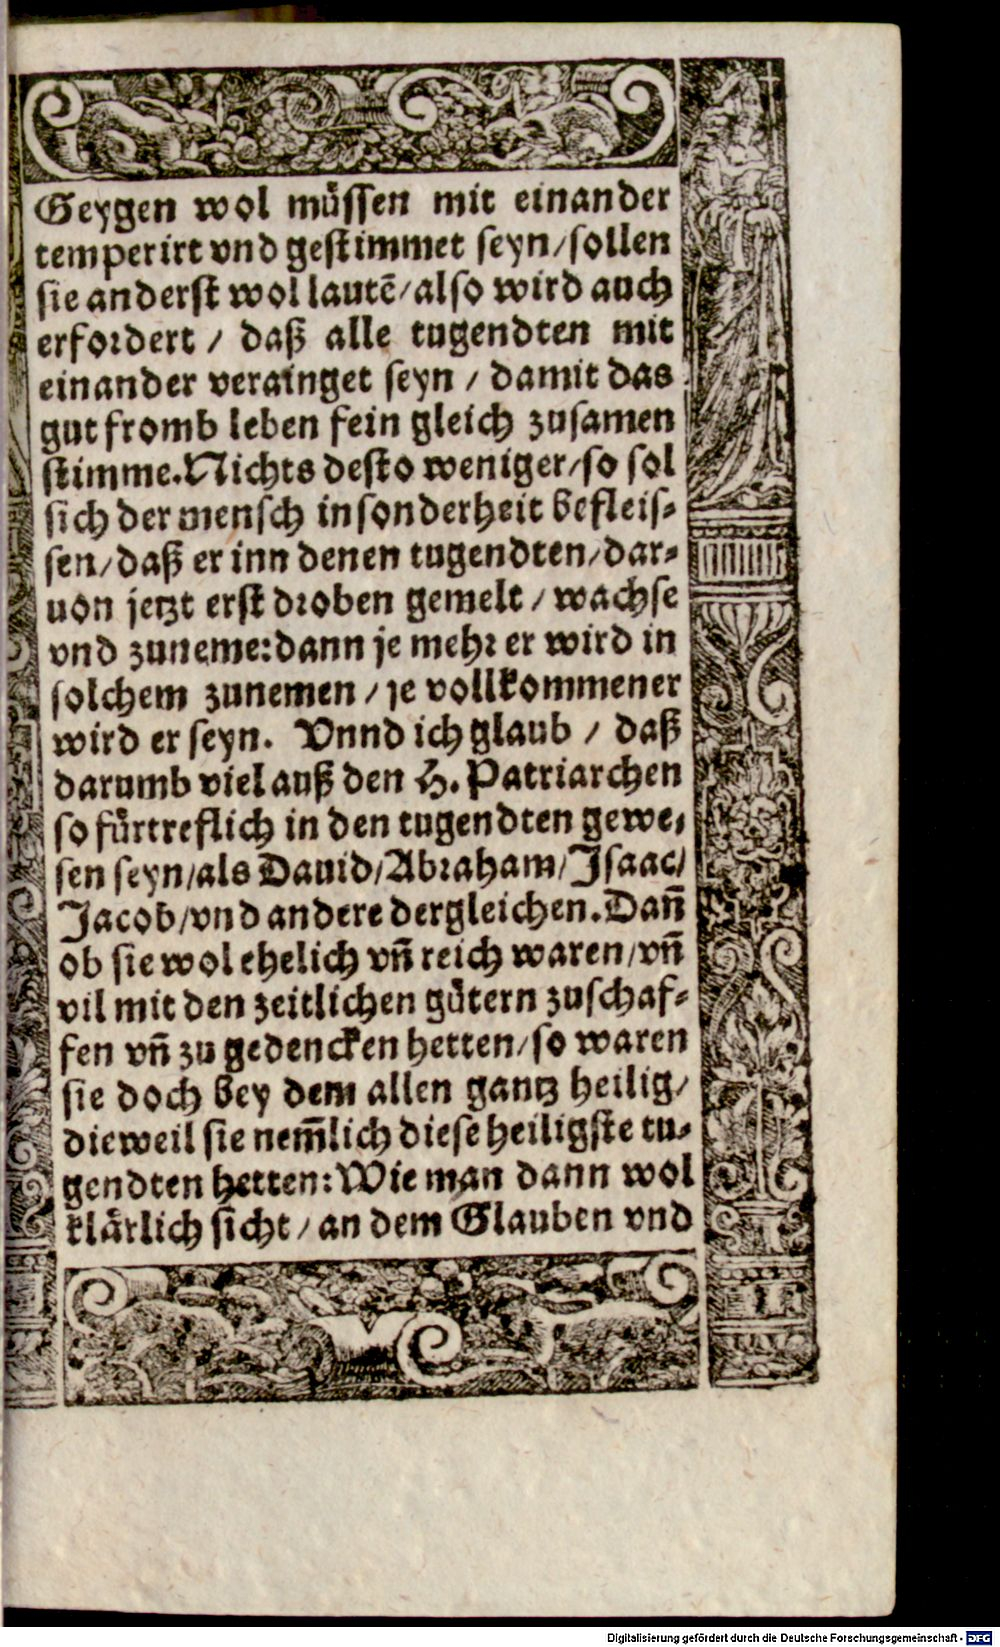 Geygen wol müssen mit einander
temperirt vnd gestimmet seyn/sollen
sie anderst wol lautē/also wird auch
erfordert / daß alle tugendten mit
einander verainget seyn / damit das
gut fromb leben fein gleich zusamen
stimme. Nichts desto weniger/so sol
sich der mensch in sonderheit befleis-
sen/daß er inn denen tugendten/dar-
uon jetzt erst droben gemelt / wachse
vnd zuneme: dann je mehr er wird in
solchem zunemen / je vollkommener
wird er seyn. Vnnd ich glaub / daß
darumb viel auß den H. Patriarchen
so fürtreflich in den tugendten gewe-
sen seyn/als Dauid/Abraham/Isaac/
Jacob/vnd andere dergleichen. Dañ
ob sie wol ehelich vñ reich waren/vñ
vil mit den zeitlichen gütern zuschaf-
fen vñ zu gedencken hetten/so waren
sie doch bey dem allen gantz heilig/
dieweil sie nem̃lich diese heiligste tu-
gendten hetten: Wie man dann wol
klärlich sicht / an dem Glauben vnd
Digitalisierung gefördert durch die Deutsche Forschungsgemeinschaft - DFG